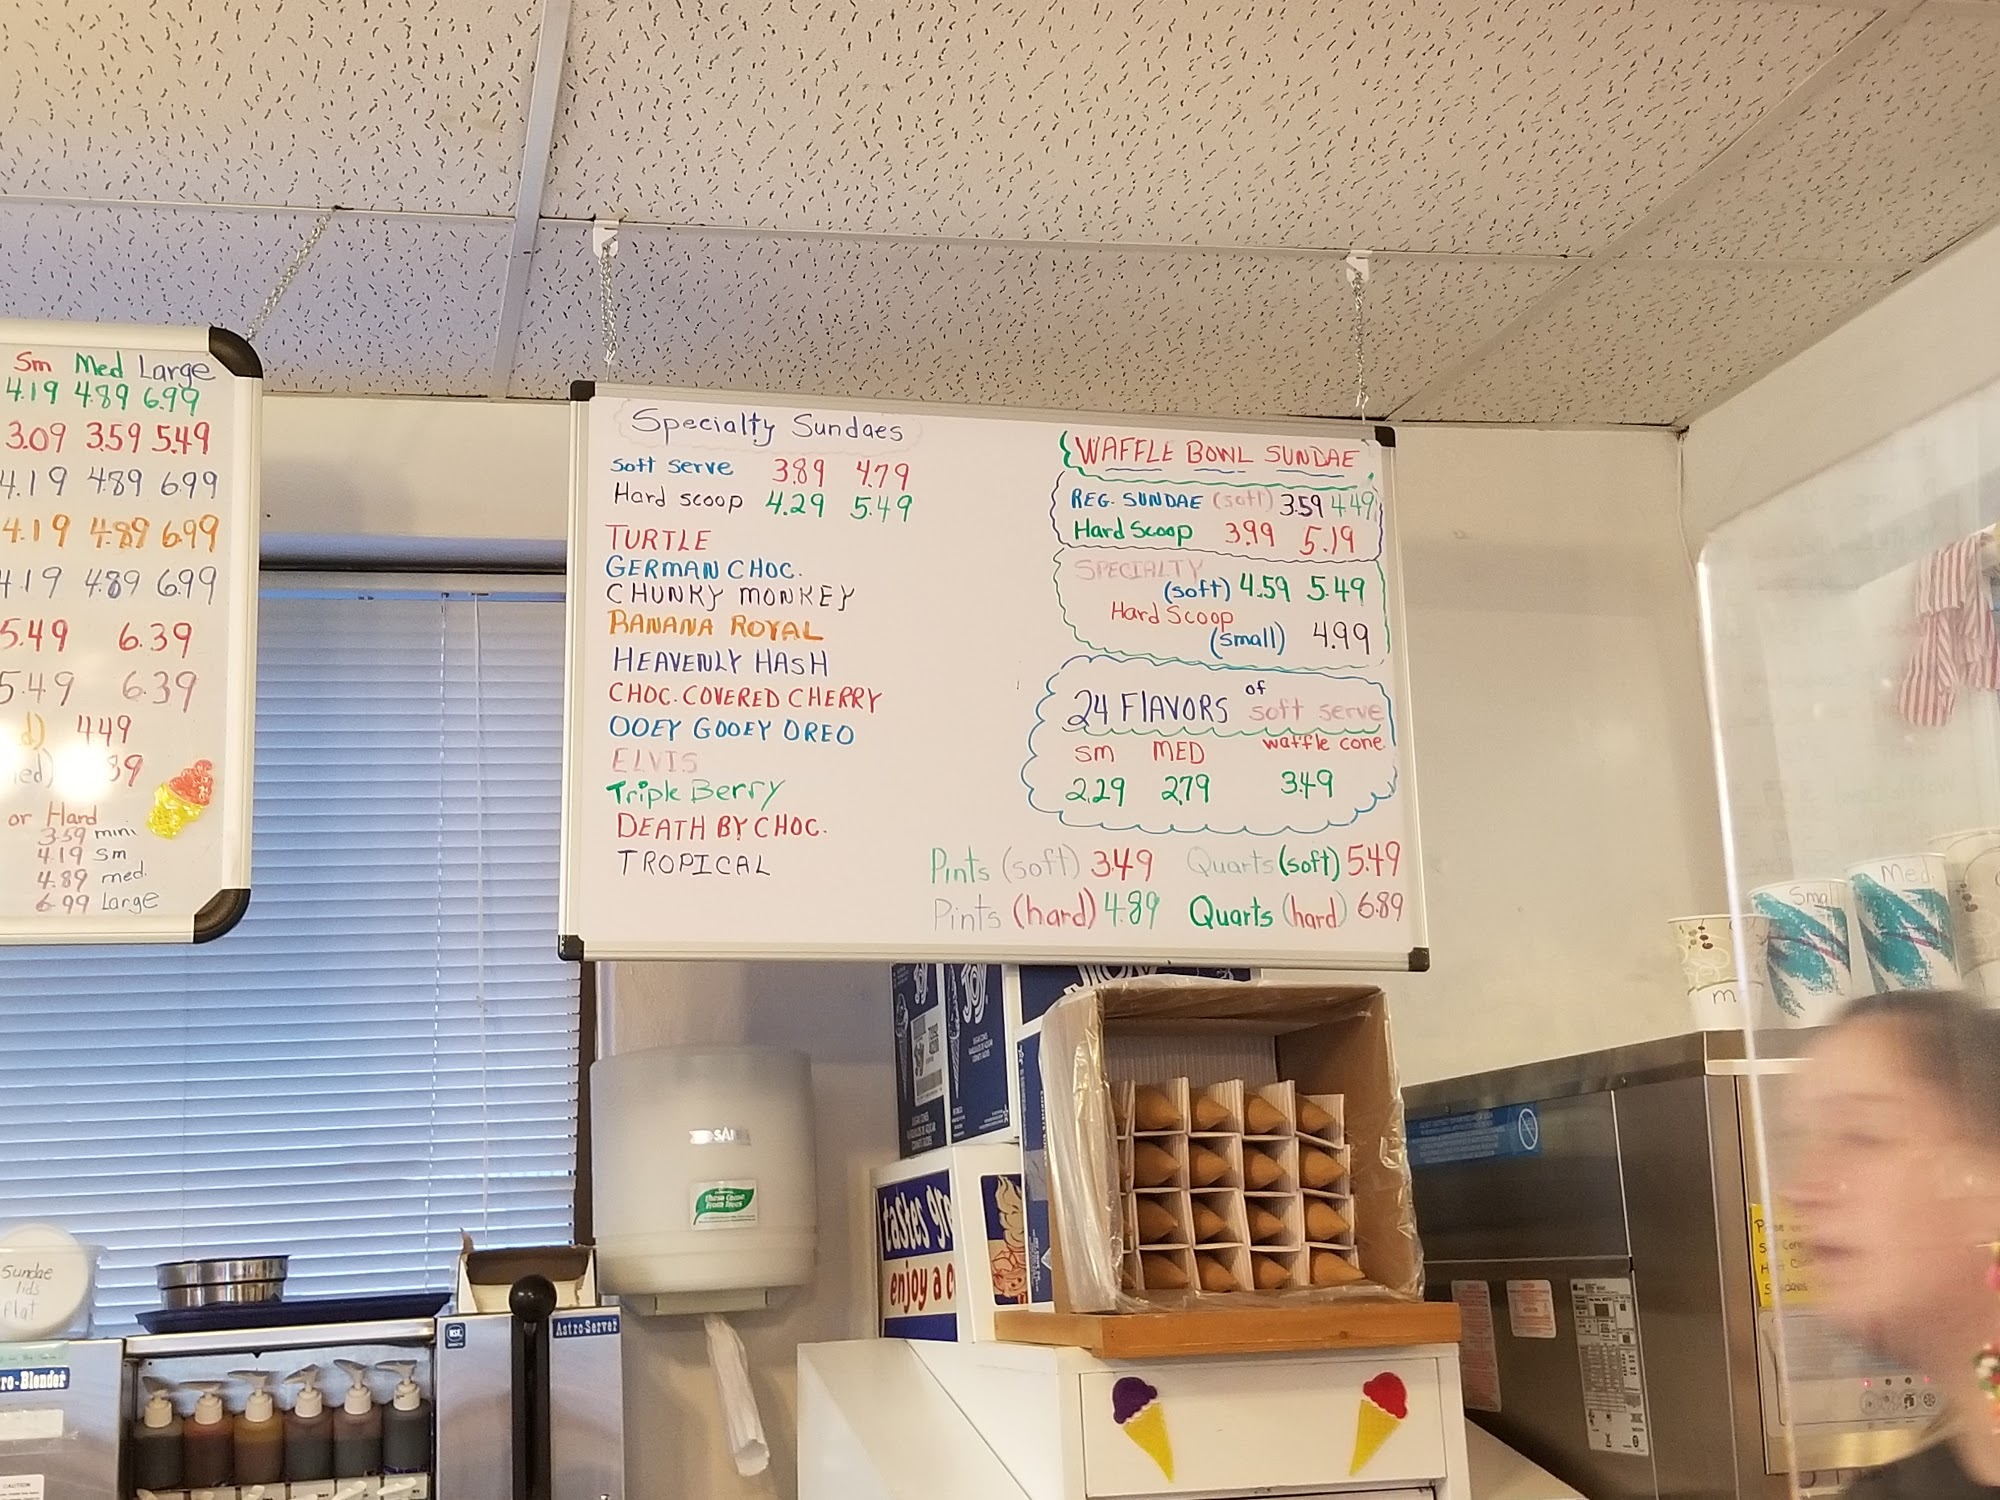 Sm Med Large
4.19 4.89 6.99
3.09 3.59 5.49
4.19 4.89 6.99
4.19 4.89 6.99
4.19 4.89 6.99
5.49 6.39
5.49 6.39
d) 4.49
ied) 39
or Hard
3.59 mini
4.19 sm
4.89 med.
6.99 Large
Specialty Sundaes
Soft Serve 3.89 4.79
Hard scoop 4.29 5.49
TURTLE
GERMAN CHOC.
CHUNKY MONKEY
BANANA ROYAL
HEAVENLY HASH
CHOC. COVERED CHERRY
OOEY GOOEY OREO
ELVIS
Triple Berry
DEATH BY CHOC.
TROPICAL
WAFFLE BOWL SUNDAE
REG. SUNDAE (soft) 3.59 4.49
Hard Scoop 3.99 5.19
SPECIALTY
(soft) 4.59 5.49
Hard Scoop
(small) 4.99
24 FLAVORS of soft serve
SM MED waffle cone
2.29 2.79 3.49
Pints (soft) 3.49 Quarts (soft) 5.49
Pints (hard) 4.89 Quarts (hard) 6.89
Small
Med.
m
JOY
JOY
SAN
These Come
From Trees
tastes gr
enjoy a c
Sundae
lids
flat
ro-Blender
NSF
Astro-Server
CAUTION